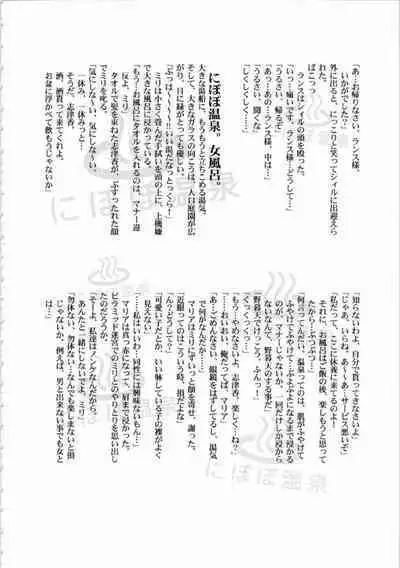 「あ…お帰りなさい、ランス様。
いかがでしたか?」
外に出ると、にっこりと笑ってシィルに出迎えら
れた。
ランスはシィルの頭を殴った。
ぽこっっ
「いっ…痛いです…ランス様…どうして…」
「うるさい、帰るぞ」
「あっ…あの…ランス様、中は…」
「うるさい、聞くな」
にぽぽ温泉。女風呂。
大きな湯船に、もうもうと立ちこめる湯気。
そして、大きなガラスの向こうは、人口庭園が広
がり、目に緑がとっても優しい。
「ぷっは～っ!いい湯だなっとっくらー!」
ミリは小さく畳んだ手拭いを頭の上に、上機嫌
で大きな風呂に浸かっている。
「ちょっと、お風呂にタオルを入れるのは、マナー違
反よ、ミリ」
タオルで髪を束ねた志津香が、ぶすったれた顔
でミリを叱る。
「気にしな～い、気にしな～い。
一休み、一休みっと…
そうだ、志津香。
酒、酒買って来てくれよ。
お盆に浮かべて飲もうじゃないか」
「知らないわよ、自分で買ってきなさいよ」
「じゃあ、いらね、あ～あ～サービス悪いぞ」
「私だって、ここに休養に来てるのよ!
それに、お風呂はご飯の後、楽しもうと思って
たから…ぶつぶつ…」
「何言ってんだ、温泉ってのは、肌がふやけて
ふやけてふやけて…ふよふよになるまで浸かる
のが、マナーじゃないか、一回だけしか浸から
ないなんて、野暮天のする事だ」
「野暮天でけっこう、ふんっ!」
「くっくっくっ…」
「もう…やめなさいよ、志津香、楽しく…ね?」
「……おいおい、俺だってば、マリア」
「あ…ごめんなさい、眼鏡をはずしてるし、湯気
で何がなんだか…」
マリアはミリにずいっと顔を寄せ、謝った。
「近眼ってのはこういう時、損だよな」
「えっ?どうして?」
「可愛い子だとか、いい躰している子の裸がよく
見えない」
「……私はいいわ…同性には興味ないもん…」
マリアは真っ赤になって、肩まで浸かった。
ピラミッド迷宮でのミリとのやりとりを思い出し
たのだろうか。
「そーよ、私達はノンケなんだから。
あんたと一緒にしないでよ、ミリ」
「勿体ない、勿体ない…なんでも楽しまないと損
じゃないか、例えば、男と出来ない事でも女と